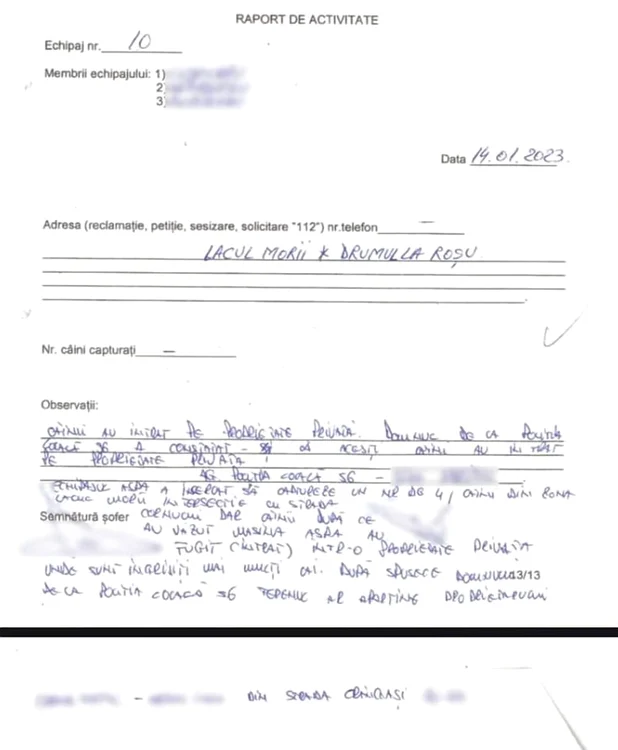 RAPORT DE ACTIVITATE
Echipaj nr. 10
Membrii echipajului: 1)
2)
3)
Data 14.01.2023.
Adresa (reclamație, petiție, sesizare, solicitare "112") nr.telefon —
LACUL MORII * DRUMUL LA ROȘU
Nr. câini capturați —
Observații:
CÂINII AU INTRAT PE PROPRIETATE PRIVATĂ. DOMNUL DE LA POLIȚIA
LOCALĂ S6 A CONSTATAT - CĂ ACEȘTI CÂINI AU INTRAT
PE PROPRIETATE PRIVATĂ
AG. POLIȚIA LOCALĂ S6 -
ECHIPAJUL ASPA A ÎNCERCAT SĂ CAPTUREZE UN NR DE 4 CÂINI DIN ZONA
LACUL MORII INTERSECȚIE CU STRADA
Semnătură șofer
DAR CÂINII DUPĂ CE
AU VĂZUT MAȘINA ASPA AU
FUGIT (INTRAT) INTR-O PROPRIETATE PRIVATĂ
UNDE SUNT ÎNGRIJIȚI MAI MULȚI CÂI. DUPĂ SPUSELE DOMNULUI 13/13
DE LA POLIȚIA LOCALĂ S6 TERENUL AR APARȚINE
- DIN STRADA CRÂNGAȘI